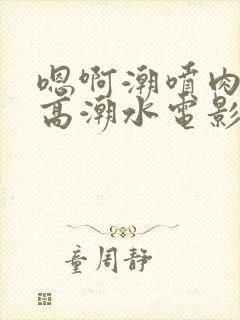 嗯啊潮喷肉
高潮水电影
童周静